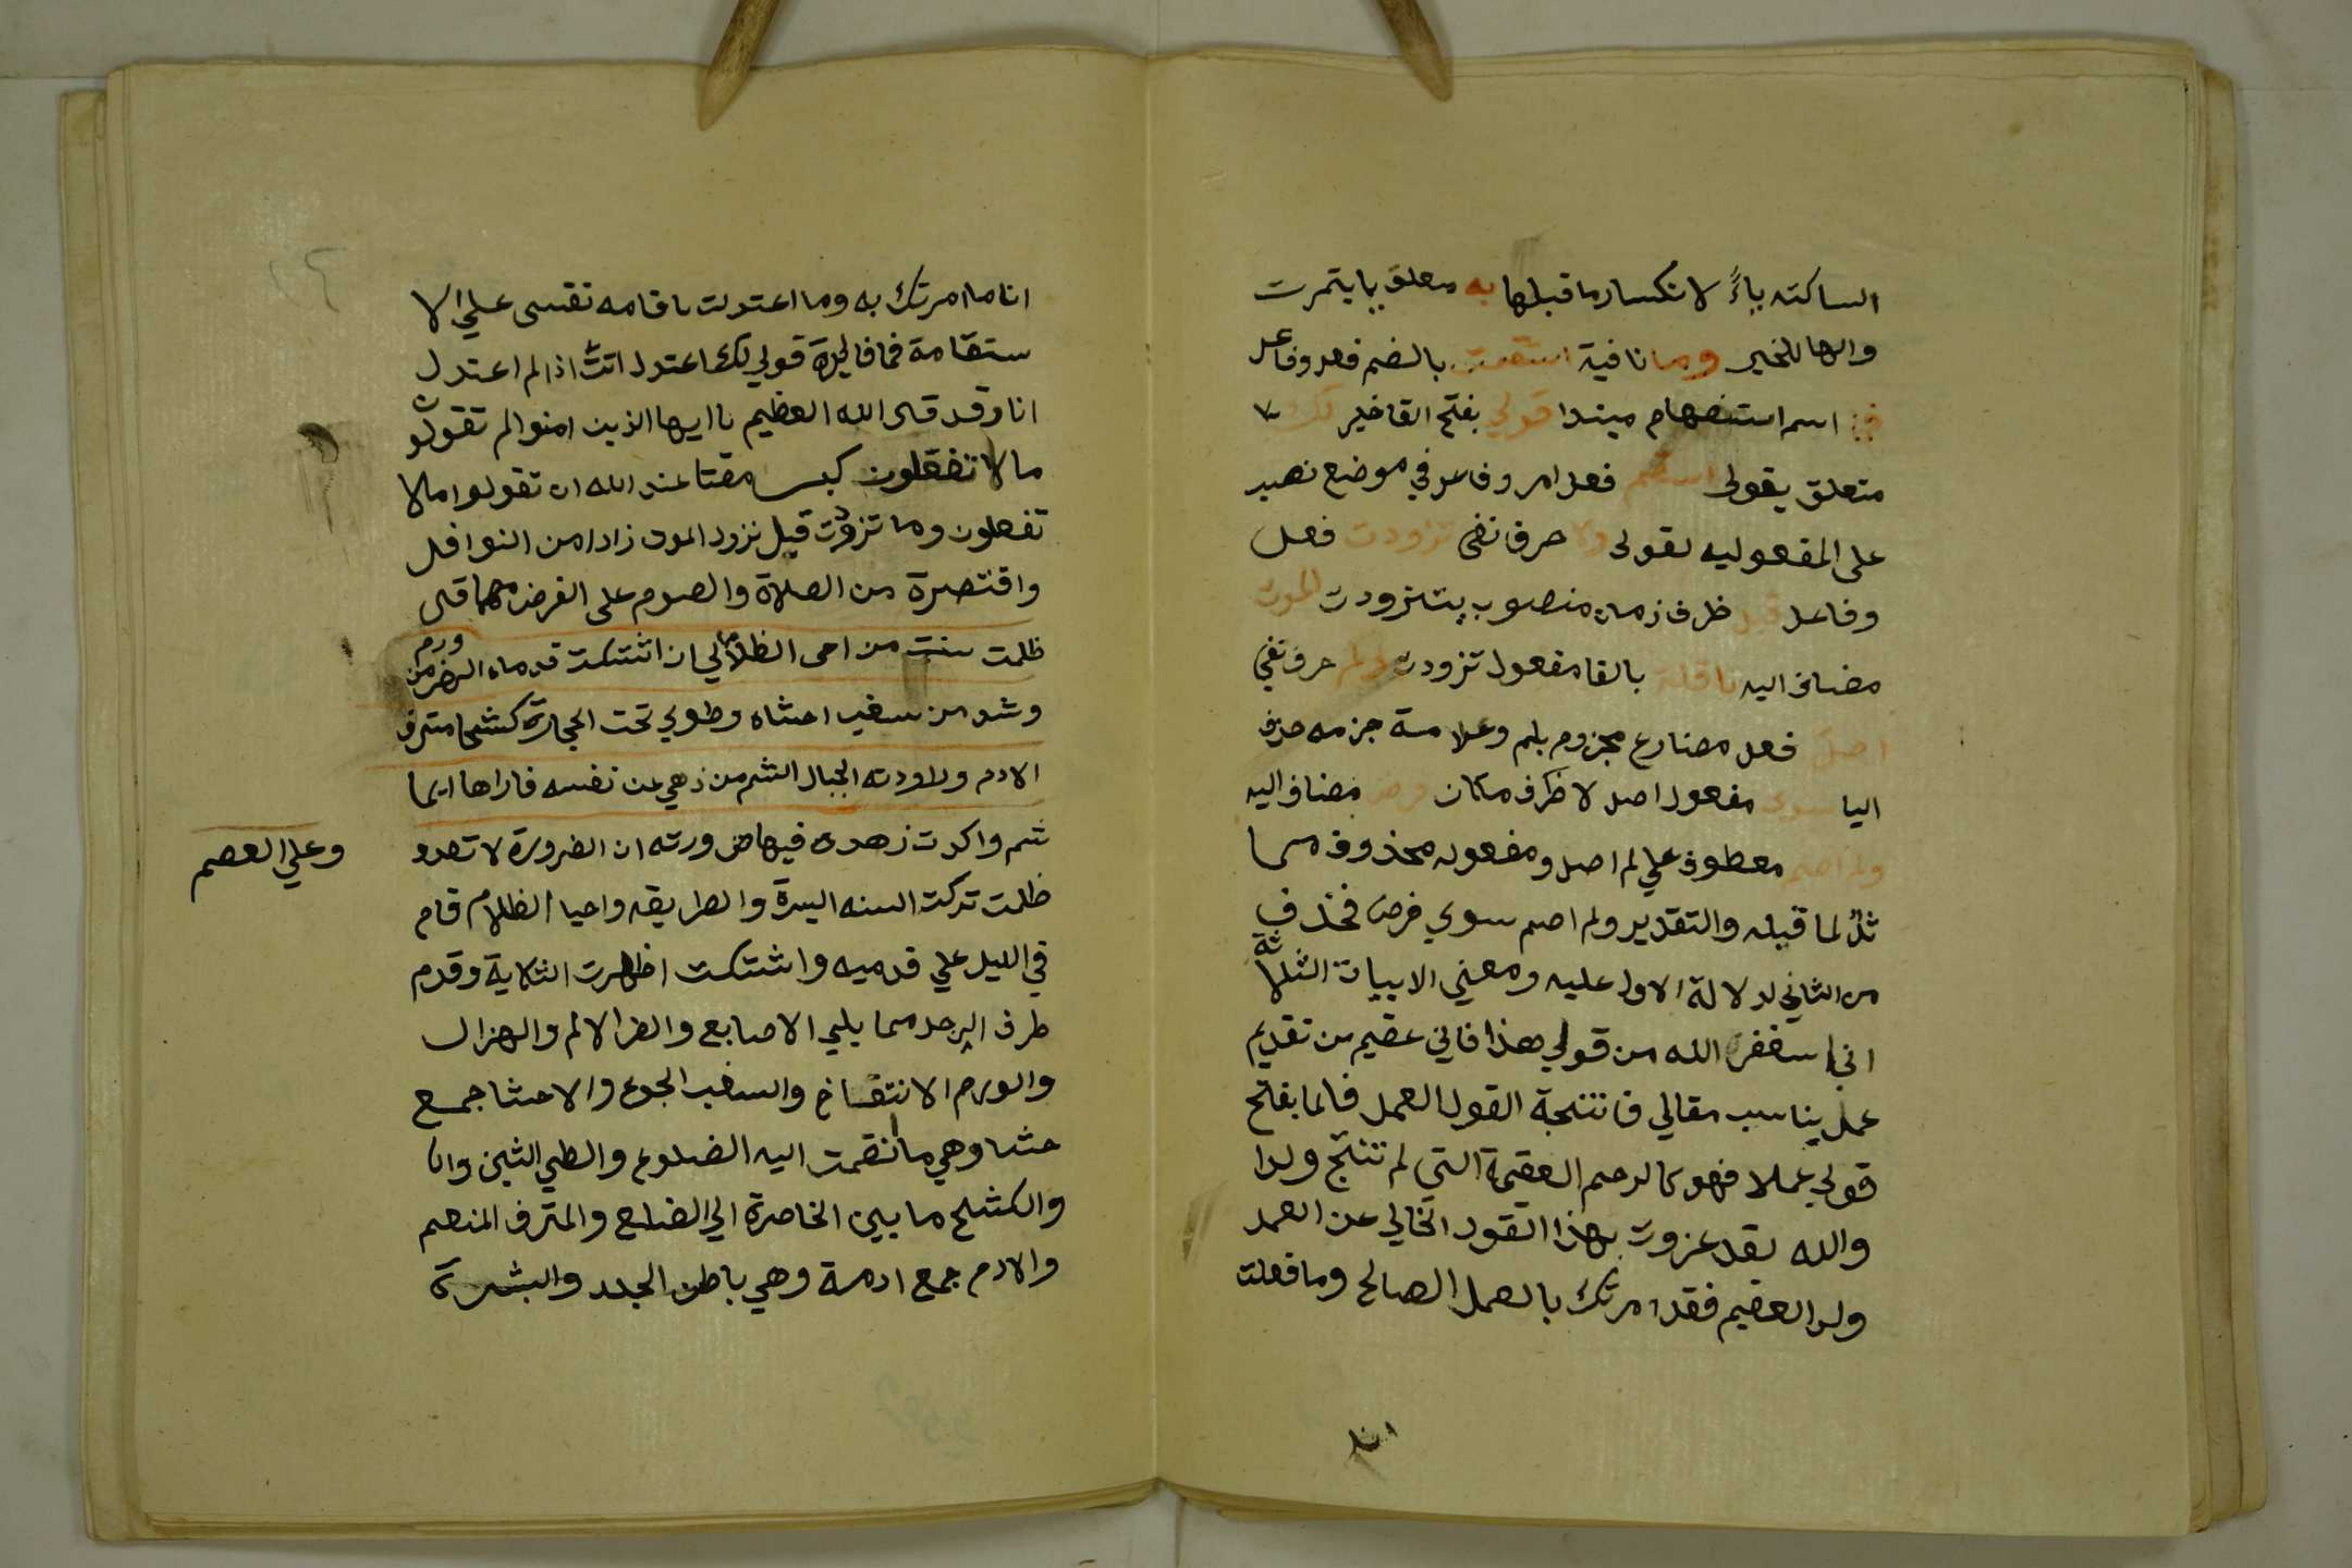 الساكنه ياءً لانكسار ما قبلها به معلق بايتمرت
والها للخير وما نافية استقمت بالضم فعل وفاعل
فما اسم استفهام مبتدا قولي بفتح القا خبر لك
متعلق بقولي استقم فعل امر وفاعل في موضع نصب
على المفعوليه لقولى ولا حرف نفى تزودت فعل
وفاعل قبل ظرف زمان منصوب بتزودت الموت
مضاف اليه نافلة بالفا مفعول تزودت ولم حرف نفي
اصل فعل مضارع مجزوم بلم وعلامة جزمه حذف
اليا سوى مفعول اصل لا ظرف مكان فرض مضاف اليه
ولم اصم معطوف علي لم اصل ومفعوله محذوف مما
ثلٌ لما قبله والتقدير ولم اصم سوي فرض فحذف
من الثاني لدلالة الاول عليه ومعني الابيات الثلاثة
اني استغفر الله من قولي هذا فاني عقيم من تقديم
عمل يناسب مقالي فانتجة القول العمل فالما بفتح
قولي عملا فهو كالرحم العقيمة التي لم تنتج ولدا
والله لقد عزوت بهذا القول الخالي عن العمل
ولد العقيم فقد امرتك بالعمل الصالح وما فعلت
انا
انا ما امرتك به وما اعتدلت باقامه نفسى علي الا
ستقامة فما فايدة قولي لك اعتدل انت اذا لم اعتدل
انا وقد قال الله العظيم يا ايها الذين امنوا لم تقولون
ما لا تفعلون كبر مقتا عند الله ان تقولوا ما لا
تفعلون وما تزودت قبل نزول الموت زادا من النوافل
واقتصرة من الصلاة والصوم على الفرض مهما قال
ظلمت سنت من احى الظلام الي ان اشتكت قدماه الضر من ورم
وشد من سغب احشاه وطوي تحت الحجارة كشحا مترف
الادم وراودته الجبال الشم من ذهي عن نفسه فاراها ايما
شم واكدت زهده فيها ضرورته ان الضرورة لا تعدو
وعلي العصم
ظلمت تركت السنه السيرة والطريقه واحيا الظلام قام
في الليل علي قدميه واشتكت اظهرت الشكاية وقدم
طرف الرجل مما يلي الاصابع والضر الالم والهزال
والورم الانتفاخ والسغب الجوع والاحشا جمع
حشا وهي ما انضمت اليه الضلوع والطي الثين وانا
والكشح ما بين الخاصرة الي الضلع والمترف المنعم
والادم جمع ادمة وهي باطن الجلد والبشرة